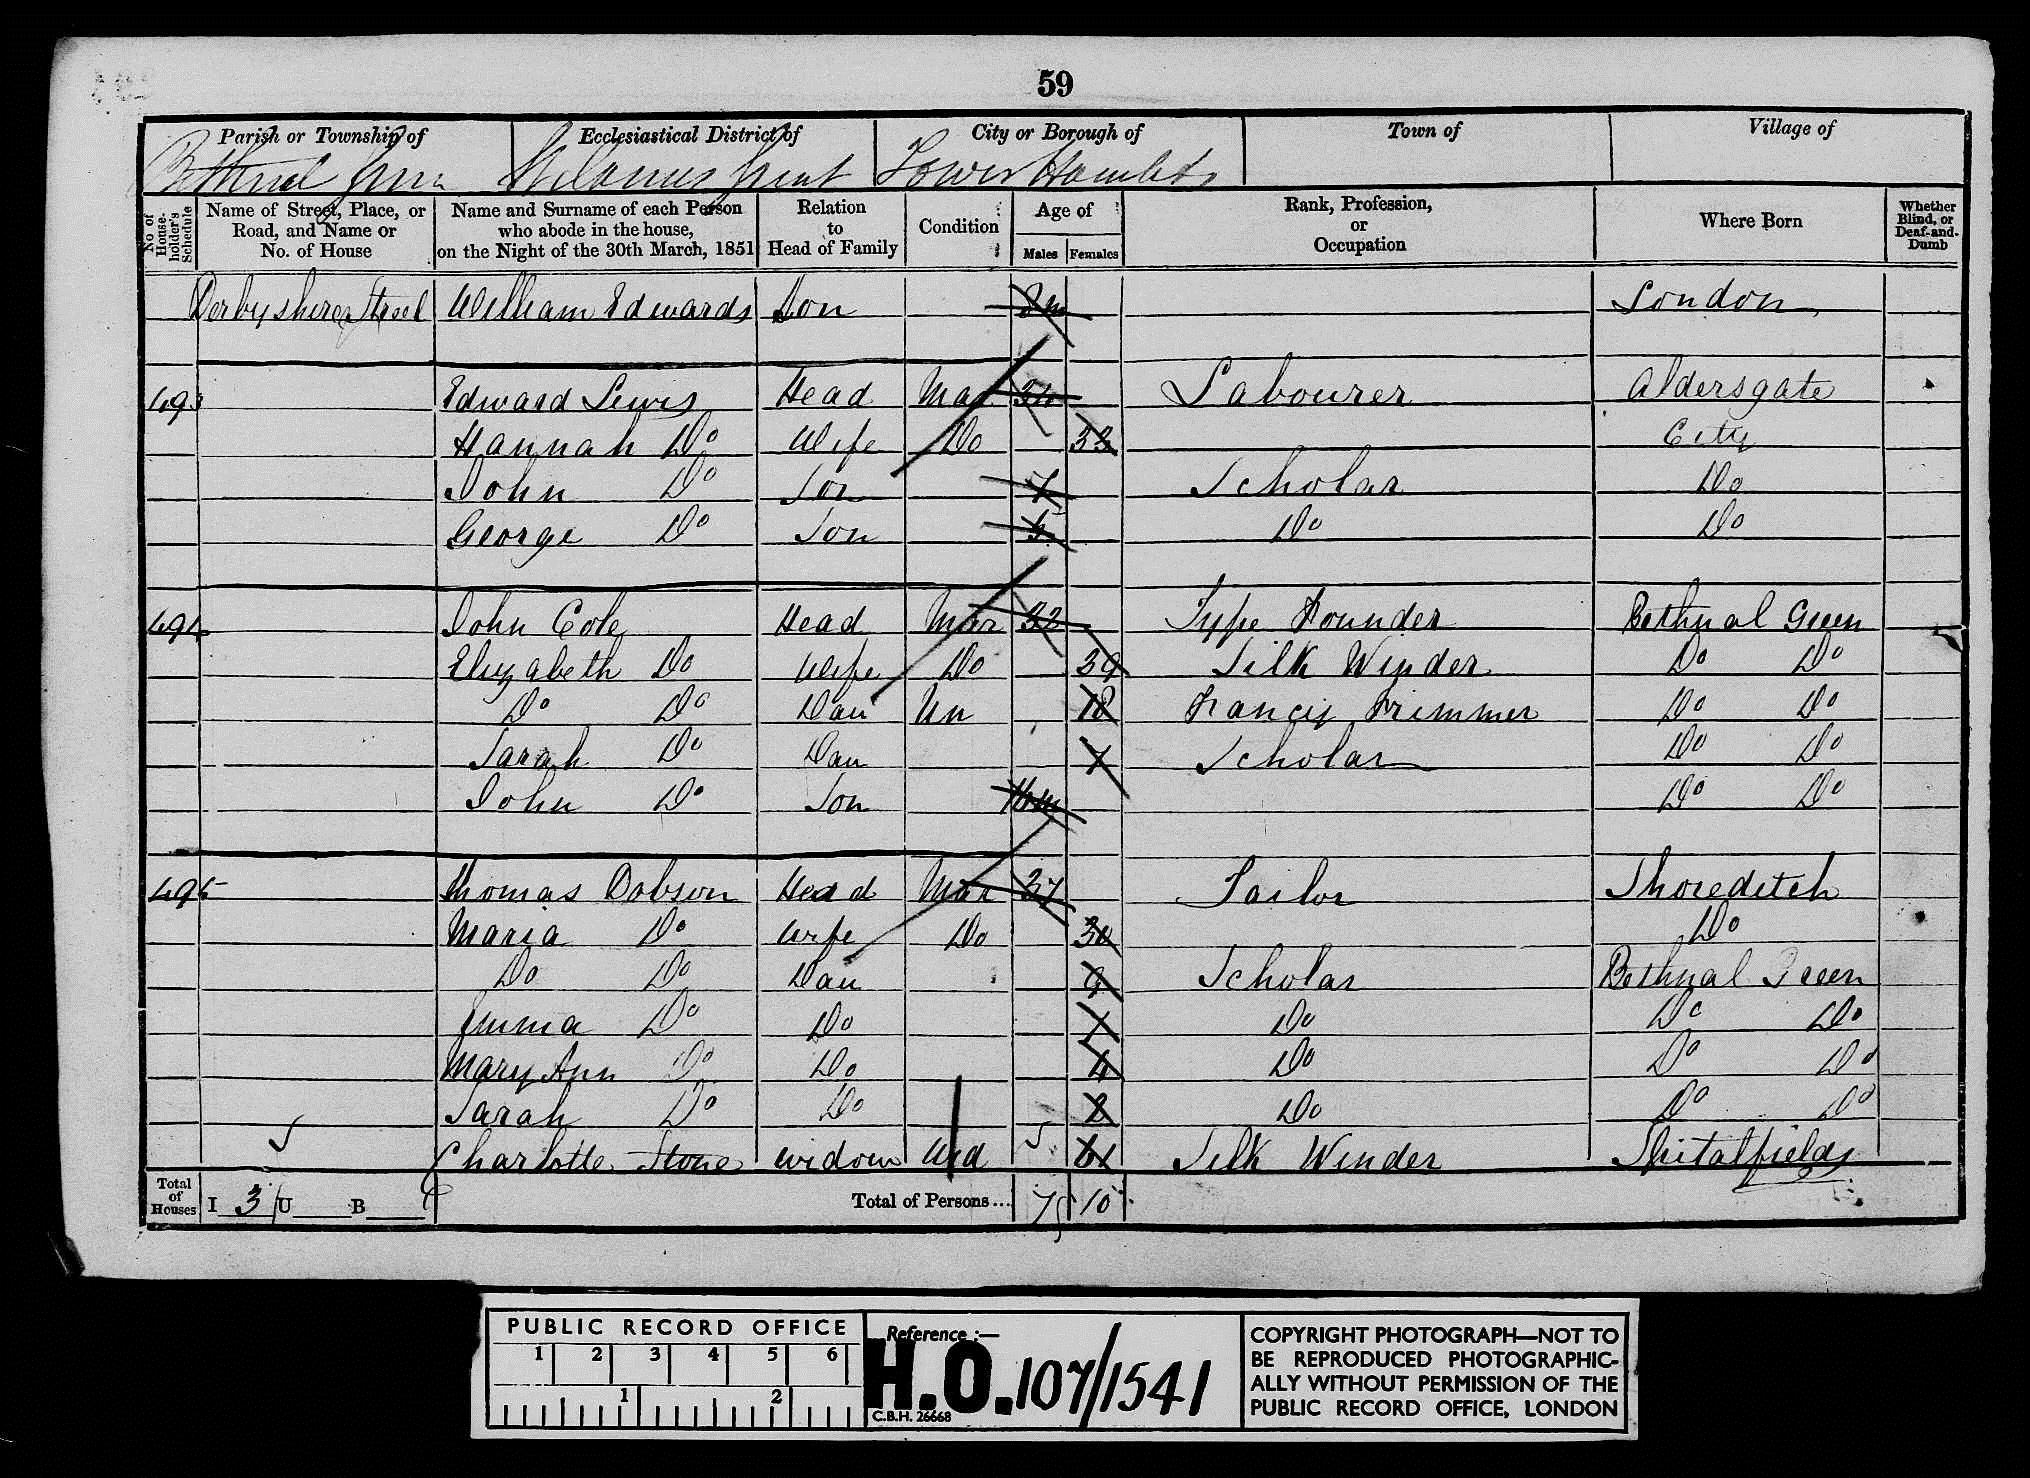 59
Parish or Township of Ecclesiastical District of City or Borough of Town of Village of
Bethnal Green St James Great Tower Hamlets
No of House-holder's Schedule
Name of Street, Place, or Road, and Name or No. of House
Name and Surname of each Person who abode in the house, on the Night of the 30th March, 1851
Relation to Head of Family
Condition
Age of
Males Females
Rank, Profession, or Occupation
Where Born
Whether Blind, or Deaf-and-Dumb
Derbyshire Street William Edwards Son London
493 Edward Lewis Head Mar Labourer Aldersgate
Hannah Do Wife Do 33 City
John Do Son 7 Scholar Do
George Do Son 5 Do Do
494 John Cole Head Mar Type Founder Bethnal Green
Elizabeth Do Wife Do 39 Silk Winder Do Do
Do Do Dau Un 18 Fancy Trimmer Do Do
Sarah Do Dau 7 Scholar Do Do
John Do Son Do Do
495 Thomas Dobson Head Mar 37 Tailor Shoreditch
Maria Do Wife Do Do
Do Do Dau 9 Scholar Bethnal Green
Emma Do Do 7 Do Do Do
Mary Ann Do Do 4 Do Do Do
Sarah Do Do 2 Do Do Do
Charlotte Stone Widow Wid 61 Silk Winder Spitalfields
Total of Houses I 3 U B Total of Persons... 7 10
PUBLIC RECORD OFFICE
1 2 3 4 5 6
1 2
Reference :—
H.O. 107/1541
C.B.H. 26668
COPYRIGHT PHOTOGRAPH—NOT TO
BE REPRODUCED PHOTOGRAPHIC-
ALLY WITHOUT PERMISSION OF THE
PUBLIC RECORD OFFICE, LONDON